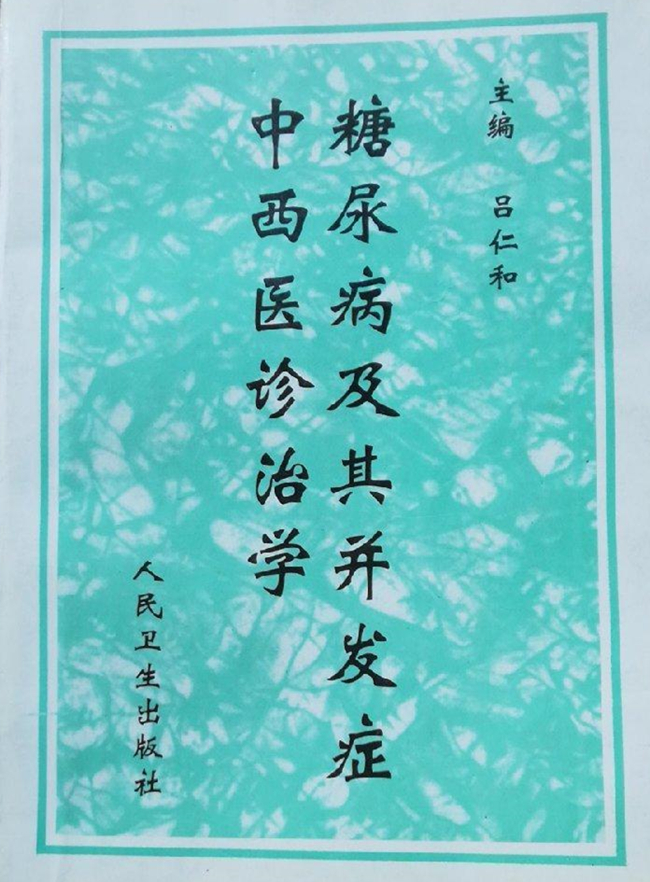 主编 吕仁和
糖尿病及其并发症
中西医诊治学
人民卫生出版社